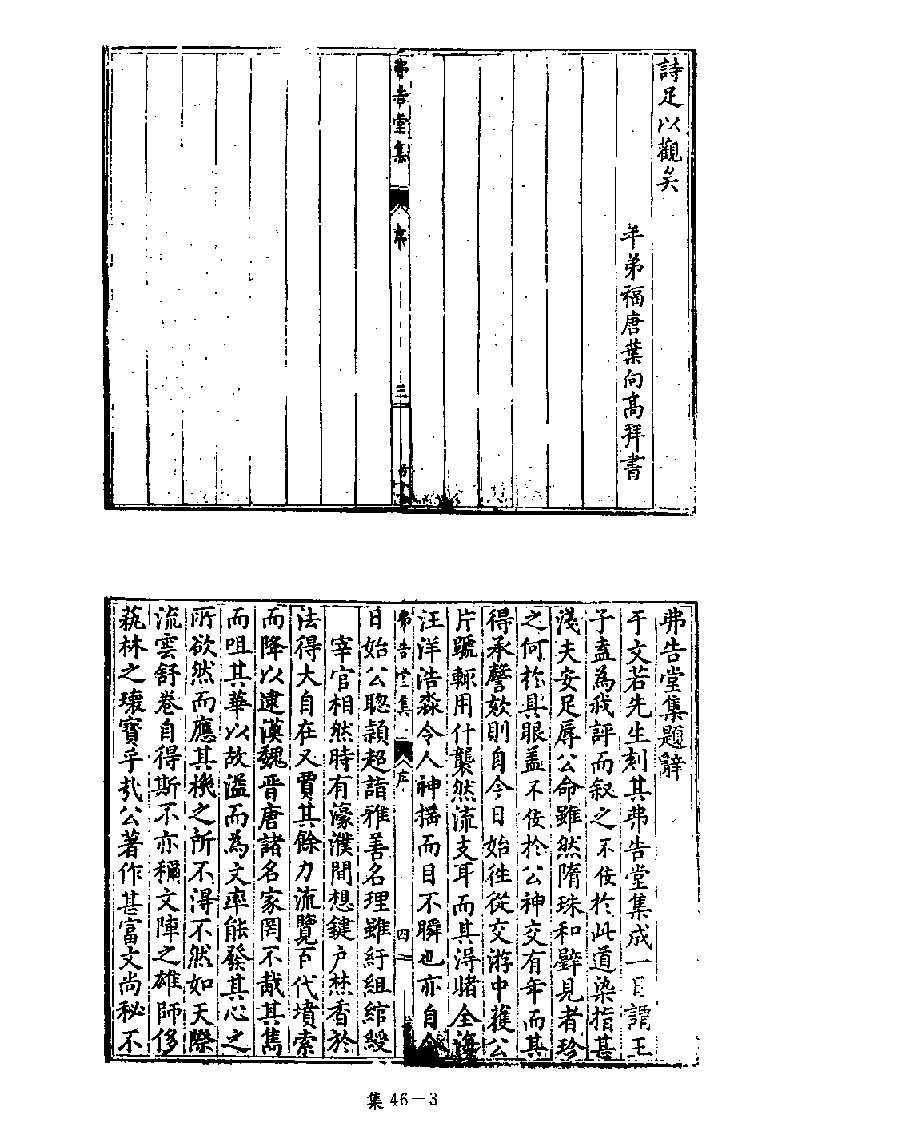 詩足以觀矣
年弟福唐葉向高拜書
弗告堂集
序
三
弗告堂集題辭
于文若先生刻其弗告堂集成一日謂王
子盍為我評而叙之不佞於此道染指甚
淺夫安足辱公命雖然隋珠和璧見者珍
之何於具眼盖不佞於公神交有年而其
得承謦欬則自今日始徃從交游中獲公
片蹏輙用什襲然流支耳而其淂睹全
汪洋浩淼令人神搖而目不瞬也亦自今
弗告堂集
序
四
日始公聦頴超詣雅善名理雖紆組綰綬
宰官相然時有濠濮間想鍵户焚香於
法得大自在又賈其餘力流覽百代墳索
而降以逮漢魏晋唐諸名家罔不胾其雋
而咀其華以故溢而為文率能發其心之
所欲然而應其機之所不淂不然如天際
流雲舒卷自得斯不亦稱文陣之雄師侈
蓺林之瓌寶乎哉公著作甚富文尚秘不
集 46－3